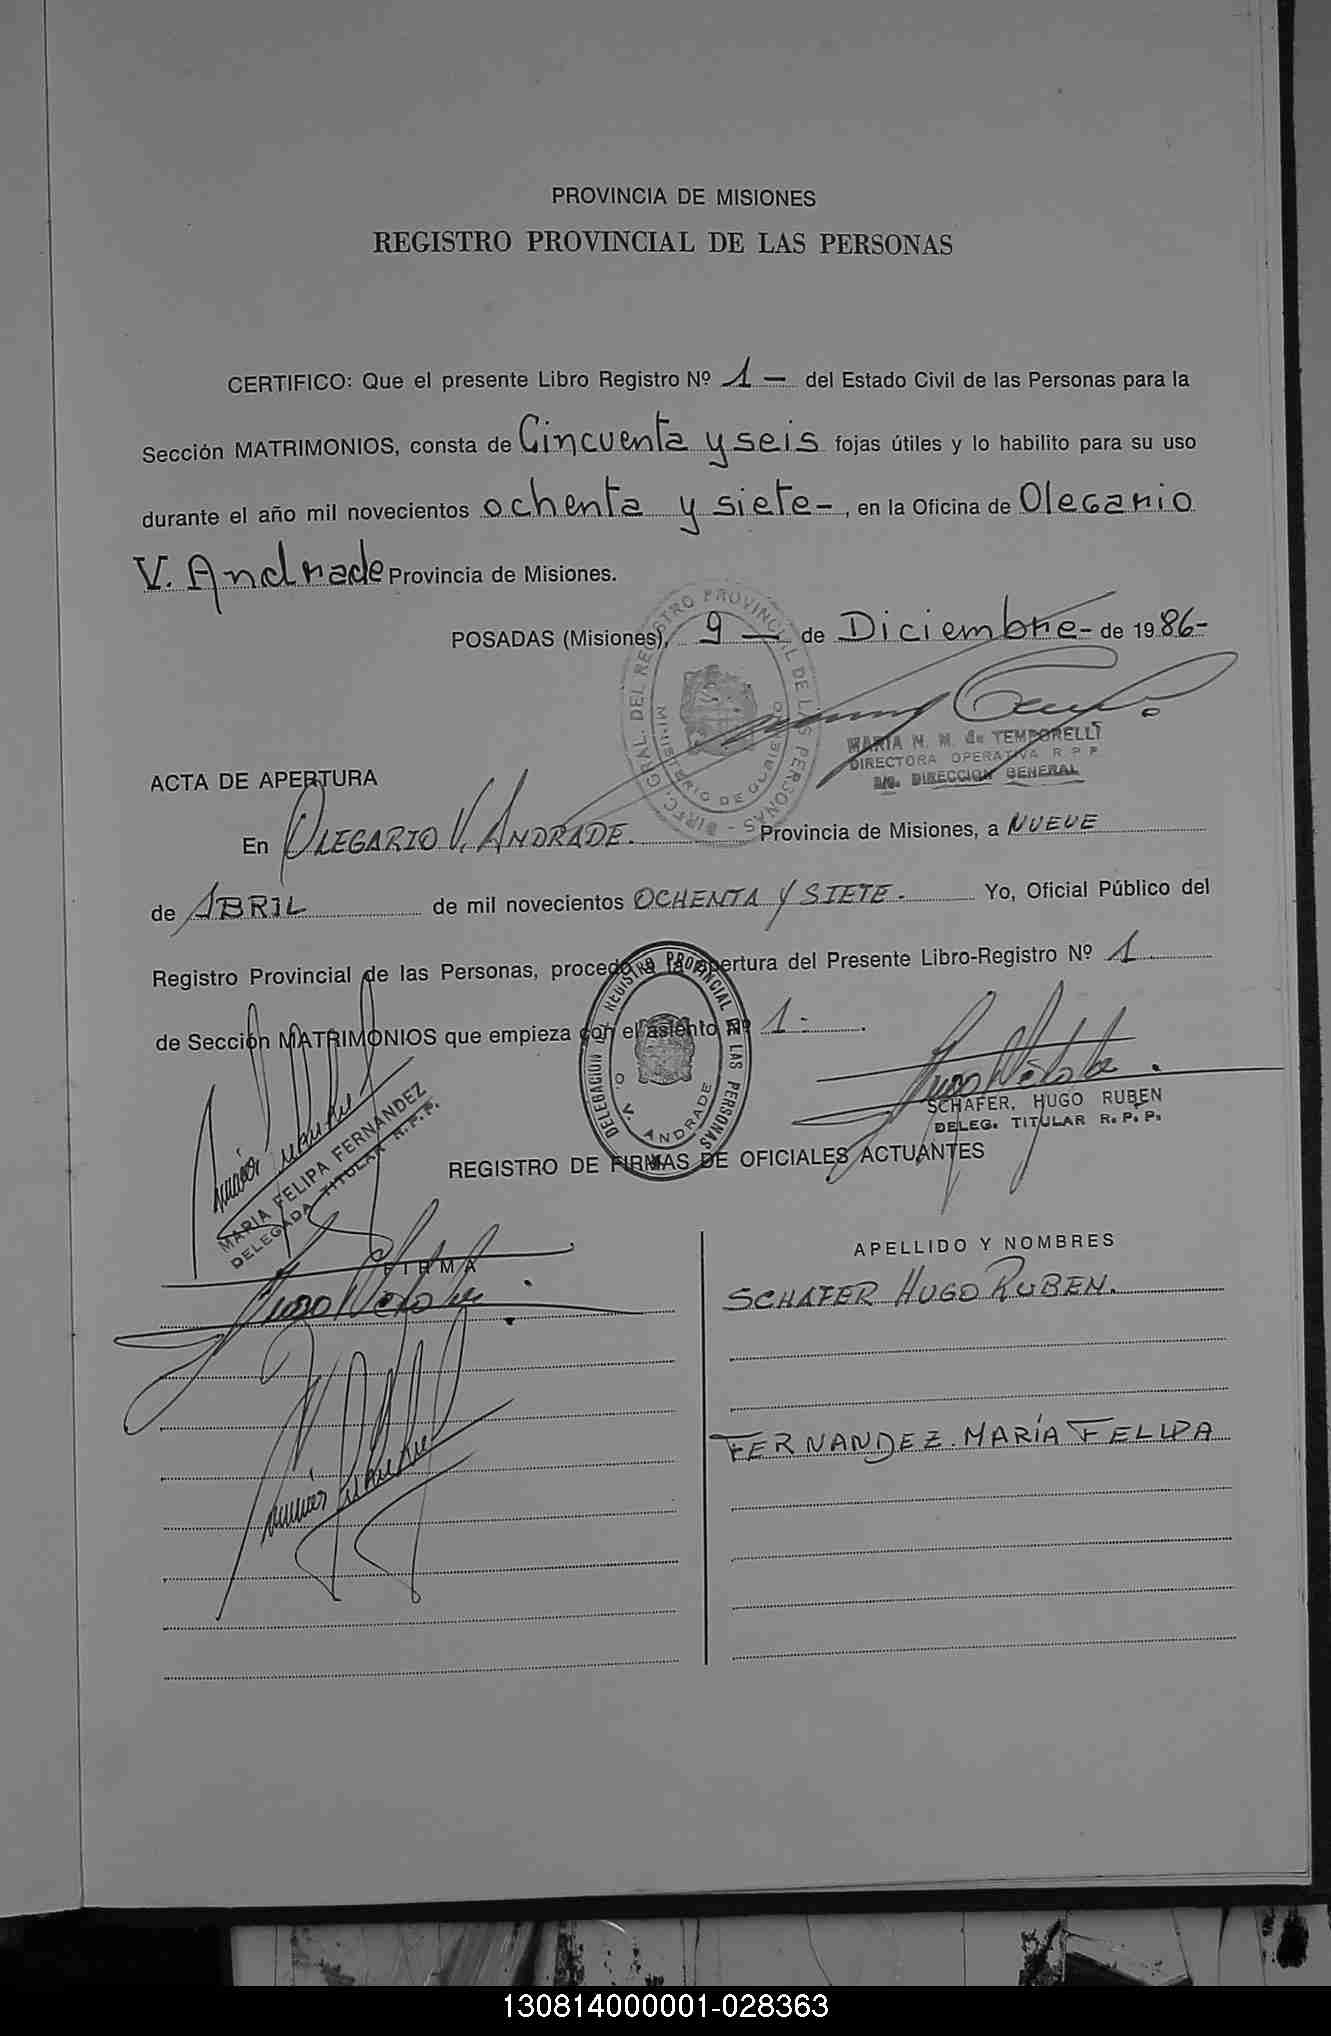 PROVINCIA DE MISIONES
REGISTRO PROVINCIAL DE LAS PERSONAS
CERTIFICO: Que el presente Libro Registro Nº 1 — del Estado Civil de las Personas para la
Sección MATRIMONIOS, consta de Cincuenta y seis fojas útiles y lo habilito para su uso
durante el año mil novecientos ochenta y siete-, en la Oficina de Olegario
V. Andrade Provincia de Misiones.
POSADAS (Misiones), 9 — de Diciembre- de 1986-
DIREC. GRAL. DEL REGISTRO PROVINCIAL DE LAS PERSONAS -
MINISTERIO DE GOBIERNO
MARIA N. M. de TEMPORELLI
DIRECTORA OPERATIVA R P P
A/C. DIRECCION GENERAL
ACTA DE APERTURA
En OLEGARIO V. ANDRADE. Provincia de Misiones, a NUEVE
de ABRIL de mil novecientos OCHENTA Y SIETE. Yo, Oficial Público del
Registro Provincial de las Personas, procedo a la apertura del Presente Libro-Registro Nº 1
de Sección MATRIMONIOS que empieza con el asiento Nº 1-
DELEGACION REGISTRO PROVINCIAL DE LAS PERSONAS
O. V. ANDRADE
SCHAFER, HUGO RUBEN
DELEG. TITULAR R. P. P.
MARIA FELIPA FERNANDEZ
DELEGADA TITULAR R. P. P.
REGISTRO DE FIRMAS DE OFICIALES ACTUANTES
FIRMA
APELLIDO Y NOMBRES
SCHAFER HUGO RUBEN.
FERNANDEZ. MARÍA FELIPA
130814000001-028363